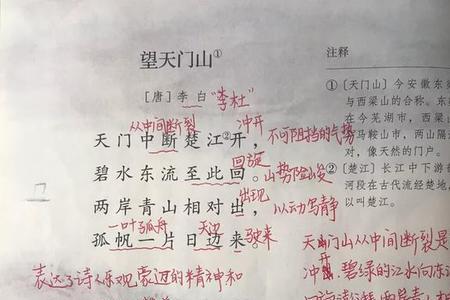 望天门山①
[唐]李白 "李杜"
从中间断裂 冲开
天门中断楚江②开， 不可阻挡的气势
回旋
碧水东流至此回。 山势险峻
出现
两岸青山相对出， 以动写静
一叶孤舟 天边
孤帆一片日边来。 驶来
表达了诗人乐观豪迈的精神和
天门山从中间断裂是
冲开 碧绿的江水向东
注释
①[天门山]今安徽东
与西梁山的合称。东
在今芜湖市，西梁
马鞍山市，两山隔
对，像天然的门户。
②[楚江]长江中下游
河段在古代流经楚地，
以叫楚江。